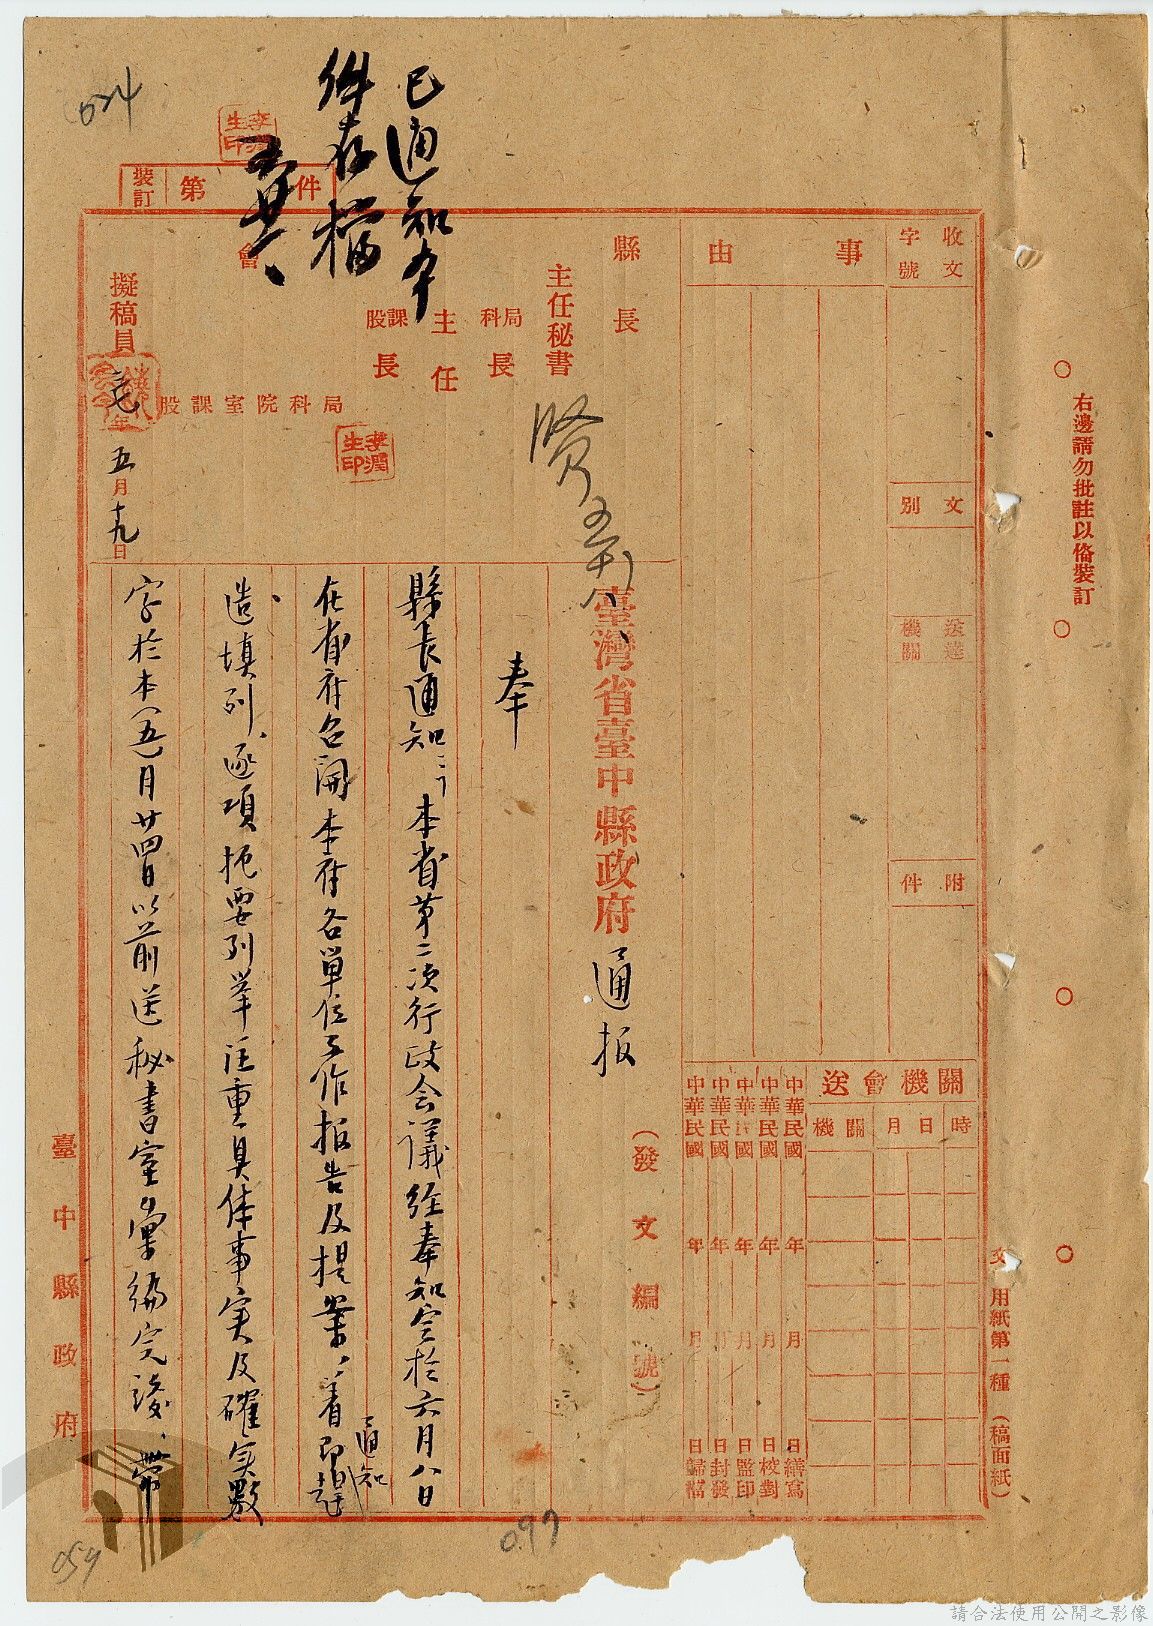 右邊請勿批註以俻裝訂
用紙第一種（稿面紙）
收文
字號
文別
送達
機關
附件
事由
關機會送
時日月
關機
中華民國年月日繕寫
中華民國年月日校對
中華民國年月日監印
中華民國年月日封發
中華民國年月日歸檔
縣長
主任秘書
局科長
主任
課股長
局科院室課股
會
擬稿員
年五月十九日
裝訂
第件
李潤生印
李潤生印
已通知本
件存檔
034
賢
臺灣省臺中縣政府通报
（發文編號）
奉
縣長通知：「本省第二次行政会議經奉知定於六月八日
在省府召開本府各單位工作报告及提案、着即通知趕
造填列、逐項扼要列举注重具体事实及確实數
字於本(五)月廿四日以前送秘書室彙編完竣、帶
臺中縣政府
097
054
請合法使用公開之影像